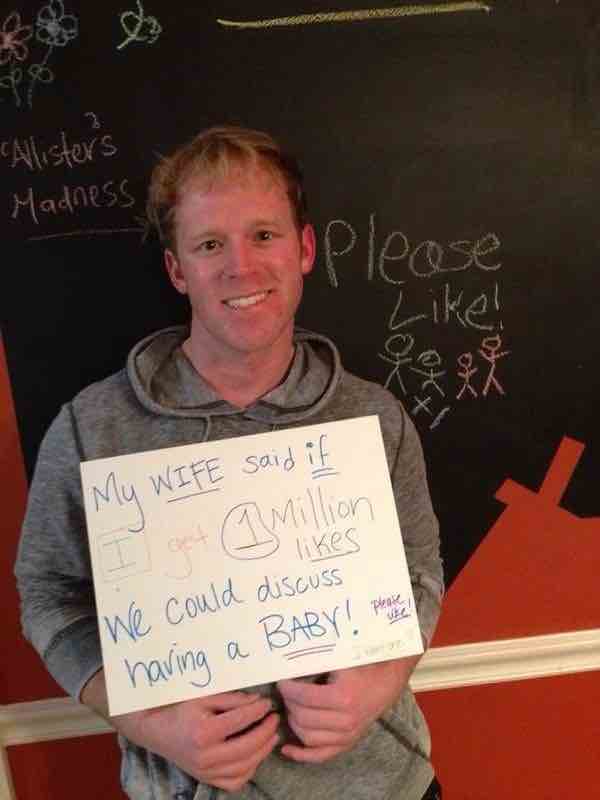 "Allister's
Madness
Please
Like!
My WIFE said if
I get 1 Million
likes
We could discuss
having a BABY!
Please
like!